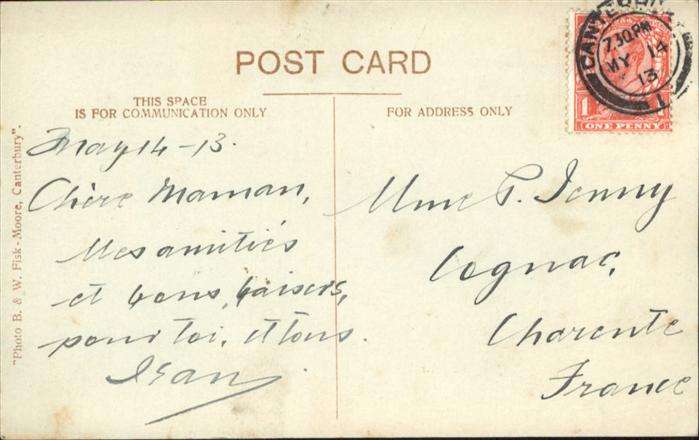 POST CARD
THIS SPACE
IS FOR COMMUNICATION ONLY
FOR ADDRESS ONLY
CANTERBURY
7.30 PM
MY 14
13
1
1
ONE PENNY
"Photo B. & W. Fisk-Moore, Canterbury".
May 14 - 13.
Chère Maman,
Mes amitiés
et bons baisers,
pour toi, et tous.
Jean
Mme P. Jenny
Cognac,
Charente
France